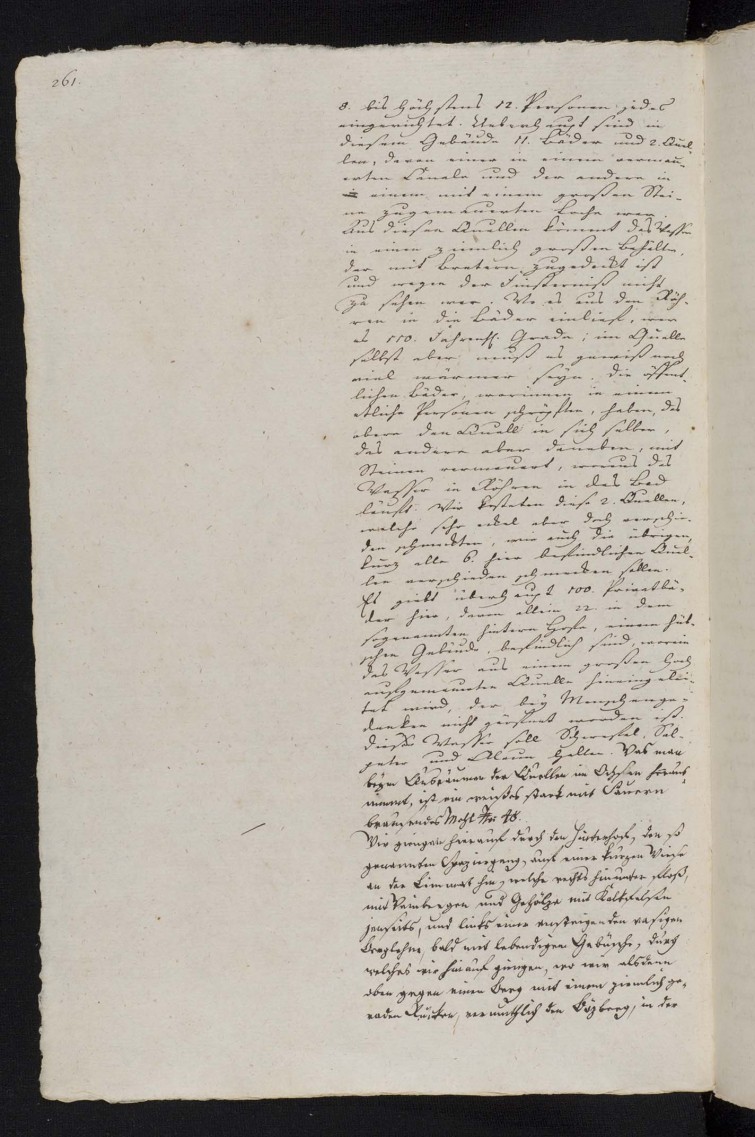 261.
8. bis höchstens 12. Personen jedes
eingerichtet. Ueberhaupt sind in
diesem Gebäude 11. Bäder und 2. Quel-
len, deren einer in einem vermau-
erten Canale und der andere in
einem mit einem großen Stei-
ne zugemauerten Loche war.
Aus diesen Quellen kömmt das Wasser
in einen ziemlich großen Behälter,
der mit Bretern zugedeckt ist
und wegen der Finsterniß nicht
zu sehen war. Wo es aus den Röh-
ren in die Bäder einlief, war
es 110. Fahrenh. Grade; im Quelle
selbst aber muß es gewiß noch
viel wärmer seyn. Die öffent-
lichen Bäder, worinnen in einem
etliche Personen schröpften, haben, das
obere den Quell in sich selber,
das andere aber daneben, mit
Steinen vermauert, woraus das
Wasser in Röhren in das Bad
läuft. Wir kosteten diese 2. Quellen,
welche sehr eckel aber doch verschie-
den schmeckten, wie auch die übrigen,
kurz alle 6. hier befindlichen Quel-
len verschieden schmecken sollen.
Es giebt überhaupt 100. Privatbä-
der hier, davon allein 22. in dem
sogenannten hintern Hofe, einem hüb-
schen Gebäude, befindlich sind, worein
das Wasser aus einem großen hoch
aufgemauerten Quelle hineingelei-
tet wird, der bey Menschenge-
denken nicht geöffnet worden ist.
Dieses Wasser soll Schwefel, Sal-
peter und Alaun halten. Was man
beym Ausräumen der Quellen im Ochsen heraus
nimmt, ist ein weißes stark mit Säuern
brausendes Mehl Nr. 18.
Wir giengen hierauf durch den Hinterhof, den so
genannten Spaziergang, auf einer kurzen Wiese
an der Limmat hin, welche rechts hinunter floß,
mit Weinbergen und Gehölze mit Kalkfelsen
jenseits, und links einer ansteigenden rasigen
Berglehne, bald mit lebendigen Gebüsche, durch
welches wir hinauf giengen, wo wir alsdenn
oben gegen einen Berg mit einem ziemlich ge-
raden Rücken, vermuthlich den Bözberg, in der